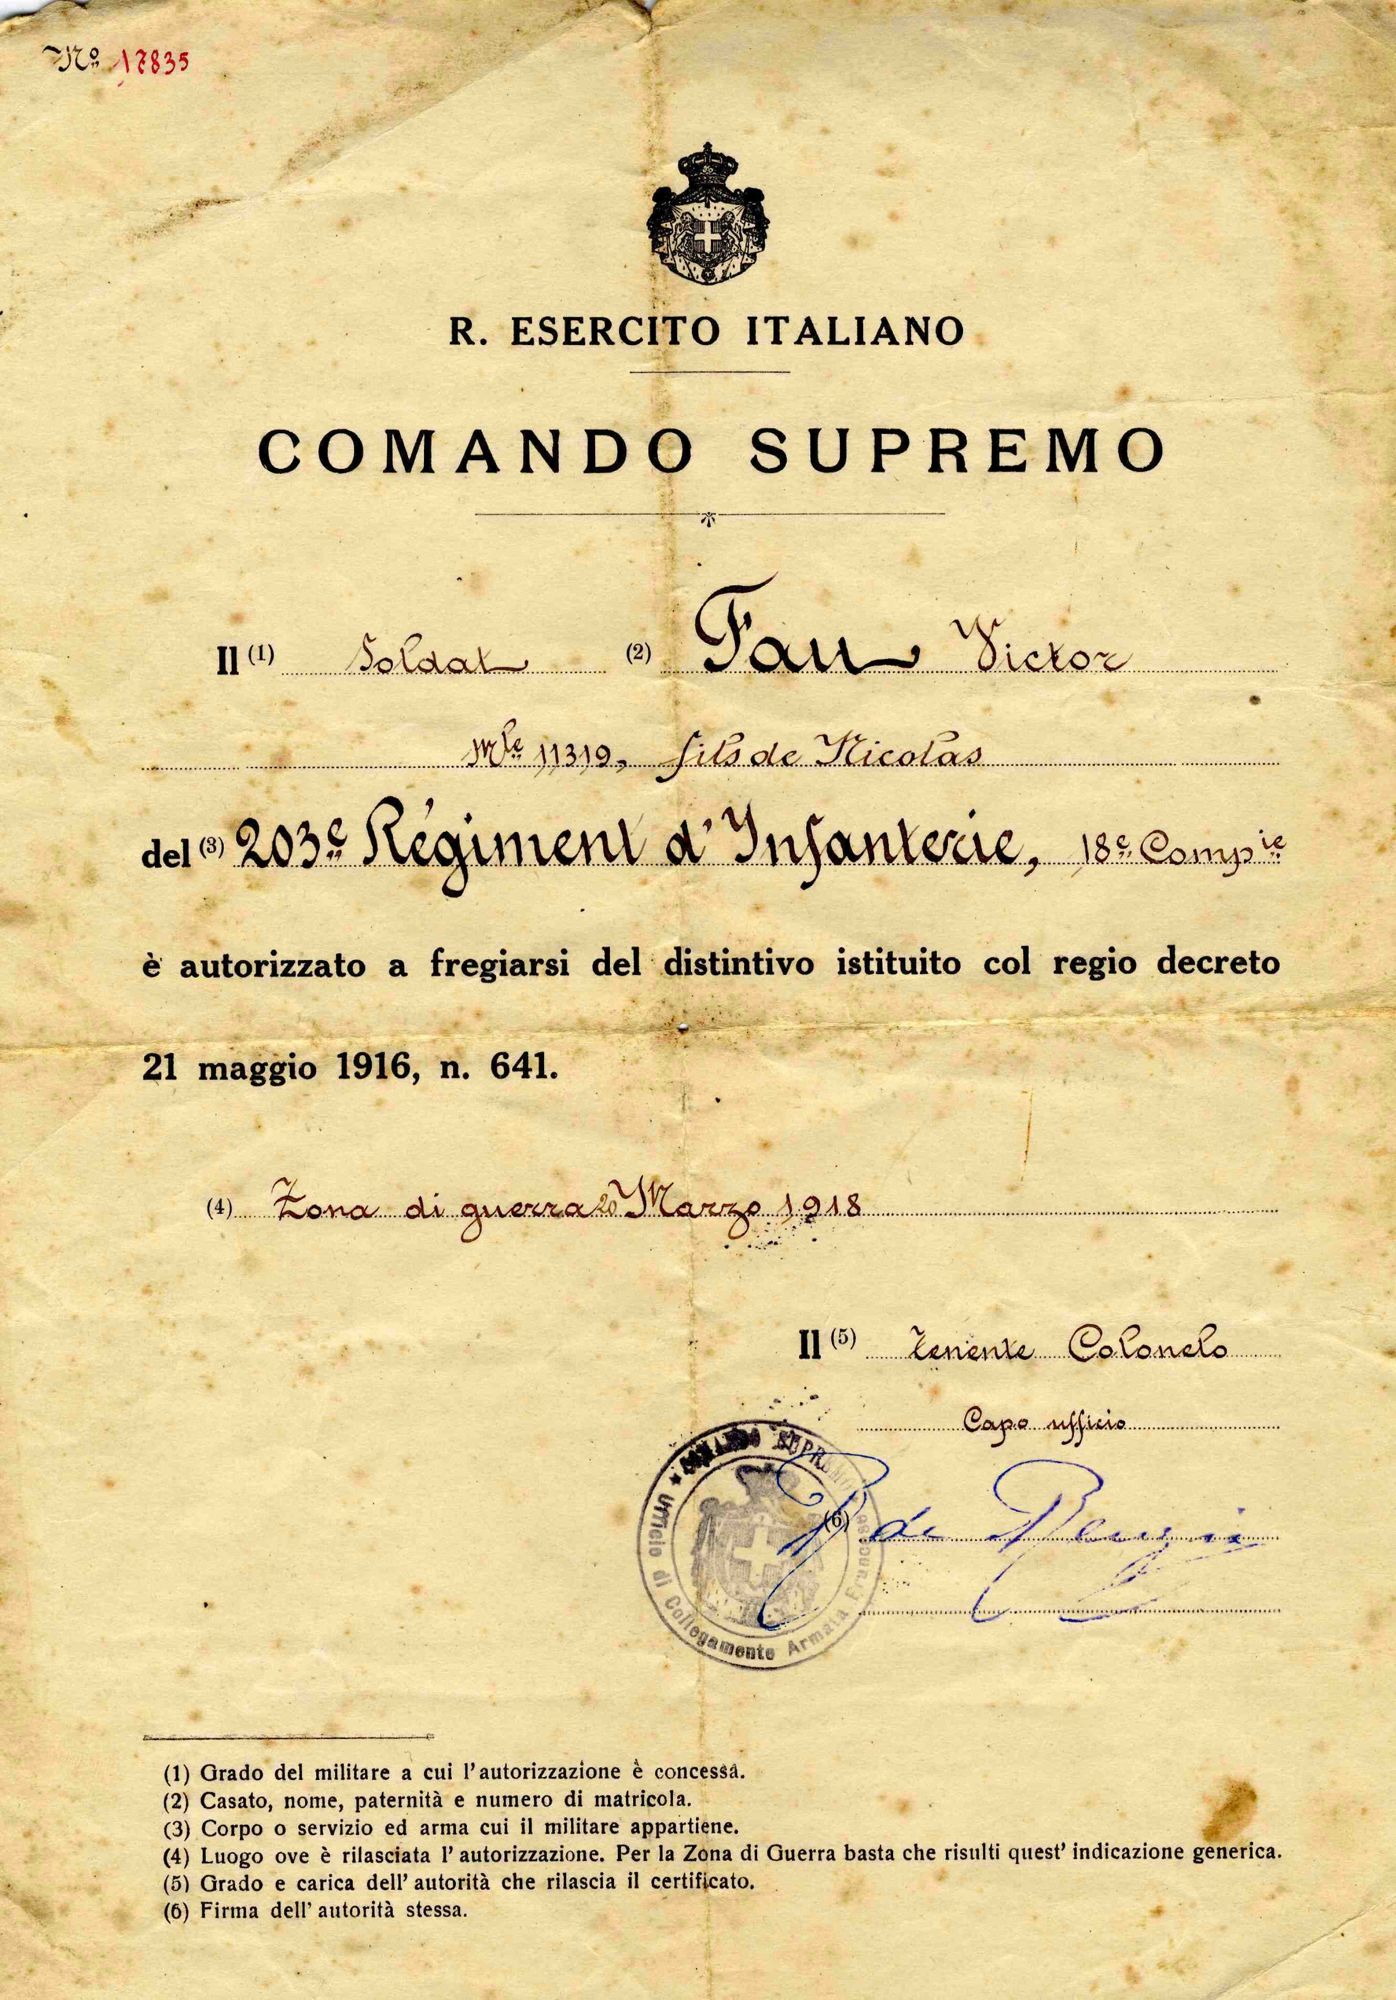 No 17835
R. ESERCITO ITALIANO
COMANDO SUPREMO
Il (1) Soldat (2) Fau Victor
Mle 11319, fils de Nicolas
del (3) 203e Régiment d'Infanterie, 18e Compie
è autorizzato a fregiarsi del distintivo istituito col regio decreto
21 maggio 1916, n. 641.
(4) Zona di guerra 20 Marzo 1918
Il (5) Tenente Colonelo
Capo ufficio
COMANDO SUPREMO
Ufficio di Collegamento Armata Francese
(6) de
(1) Grado del militare a cui l'autorizzazione è concessa.
(2) Casato, nome, paternità e numero di matricola.
(3) Corpo o servizio ed arma cui il militare appartiene.
(4) Luogo ove è rilasciata l'autorizzazione. Per la Zona di Guerra basta che risulti quest' indicazione generica.
(5) Grado e carica dell' autorità che rilascia il certificato.
(6) Firma dell' autorità stessa.